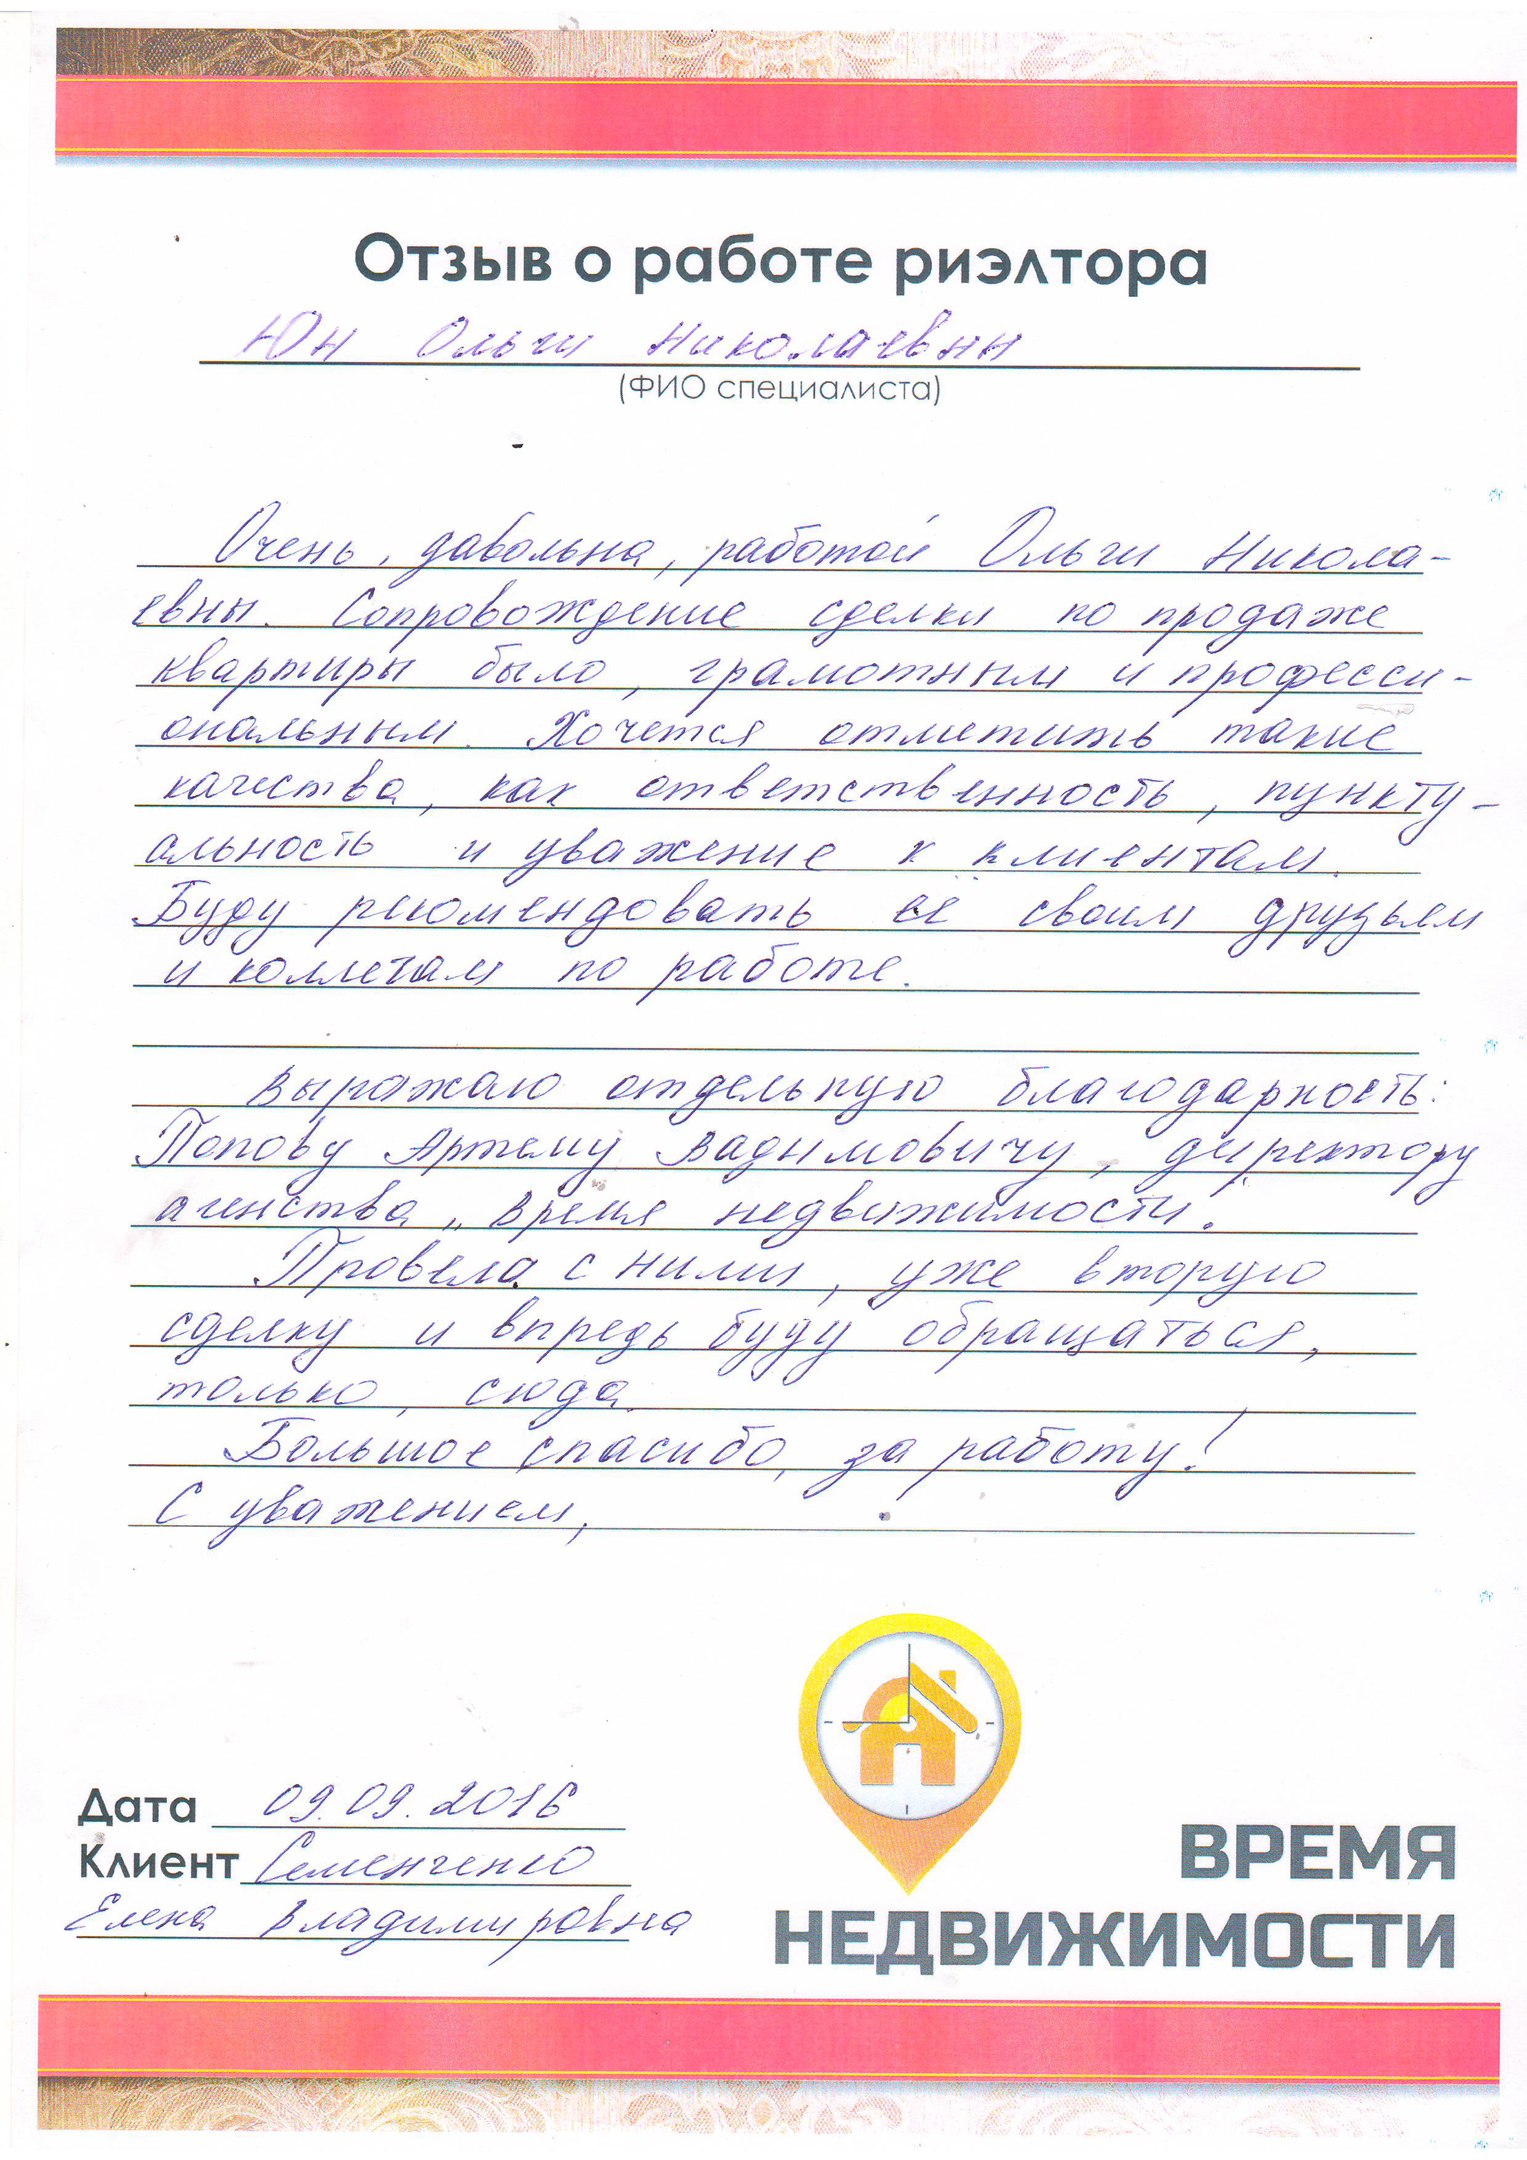 Отзыв о работе риэлтора
Юн Ольги Николаевны
(ФИО специалиста)
Очень, давольна, работой Ольги Никола-
евны. Сопровождение сделки по продаже
квартиры было, грамотным и професси-
ональным. Хочется отметить такие
качества, как ответственность, пункту-
альность и уважение к клиентам.
Буду рекомендовать её своим друзьям
и коллегам по работе.
Выражаю отдельную благодарность:
Попову Артему Вадимовичу, директору
агенства „Время недвижимости".
Провела с ними, уже вторую
сделку и впредь буду обращаться,
только, сюда.
Большое спасибо, за работу!
С уважением,
Дата 09.09.2016
Клиент Семенченко
Елена Владимировна
ВРЕМЯ
НЕДВИЖИМОСТИ